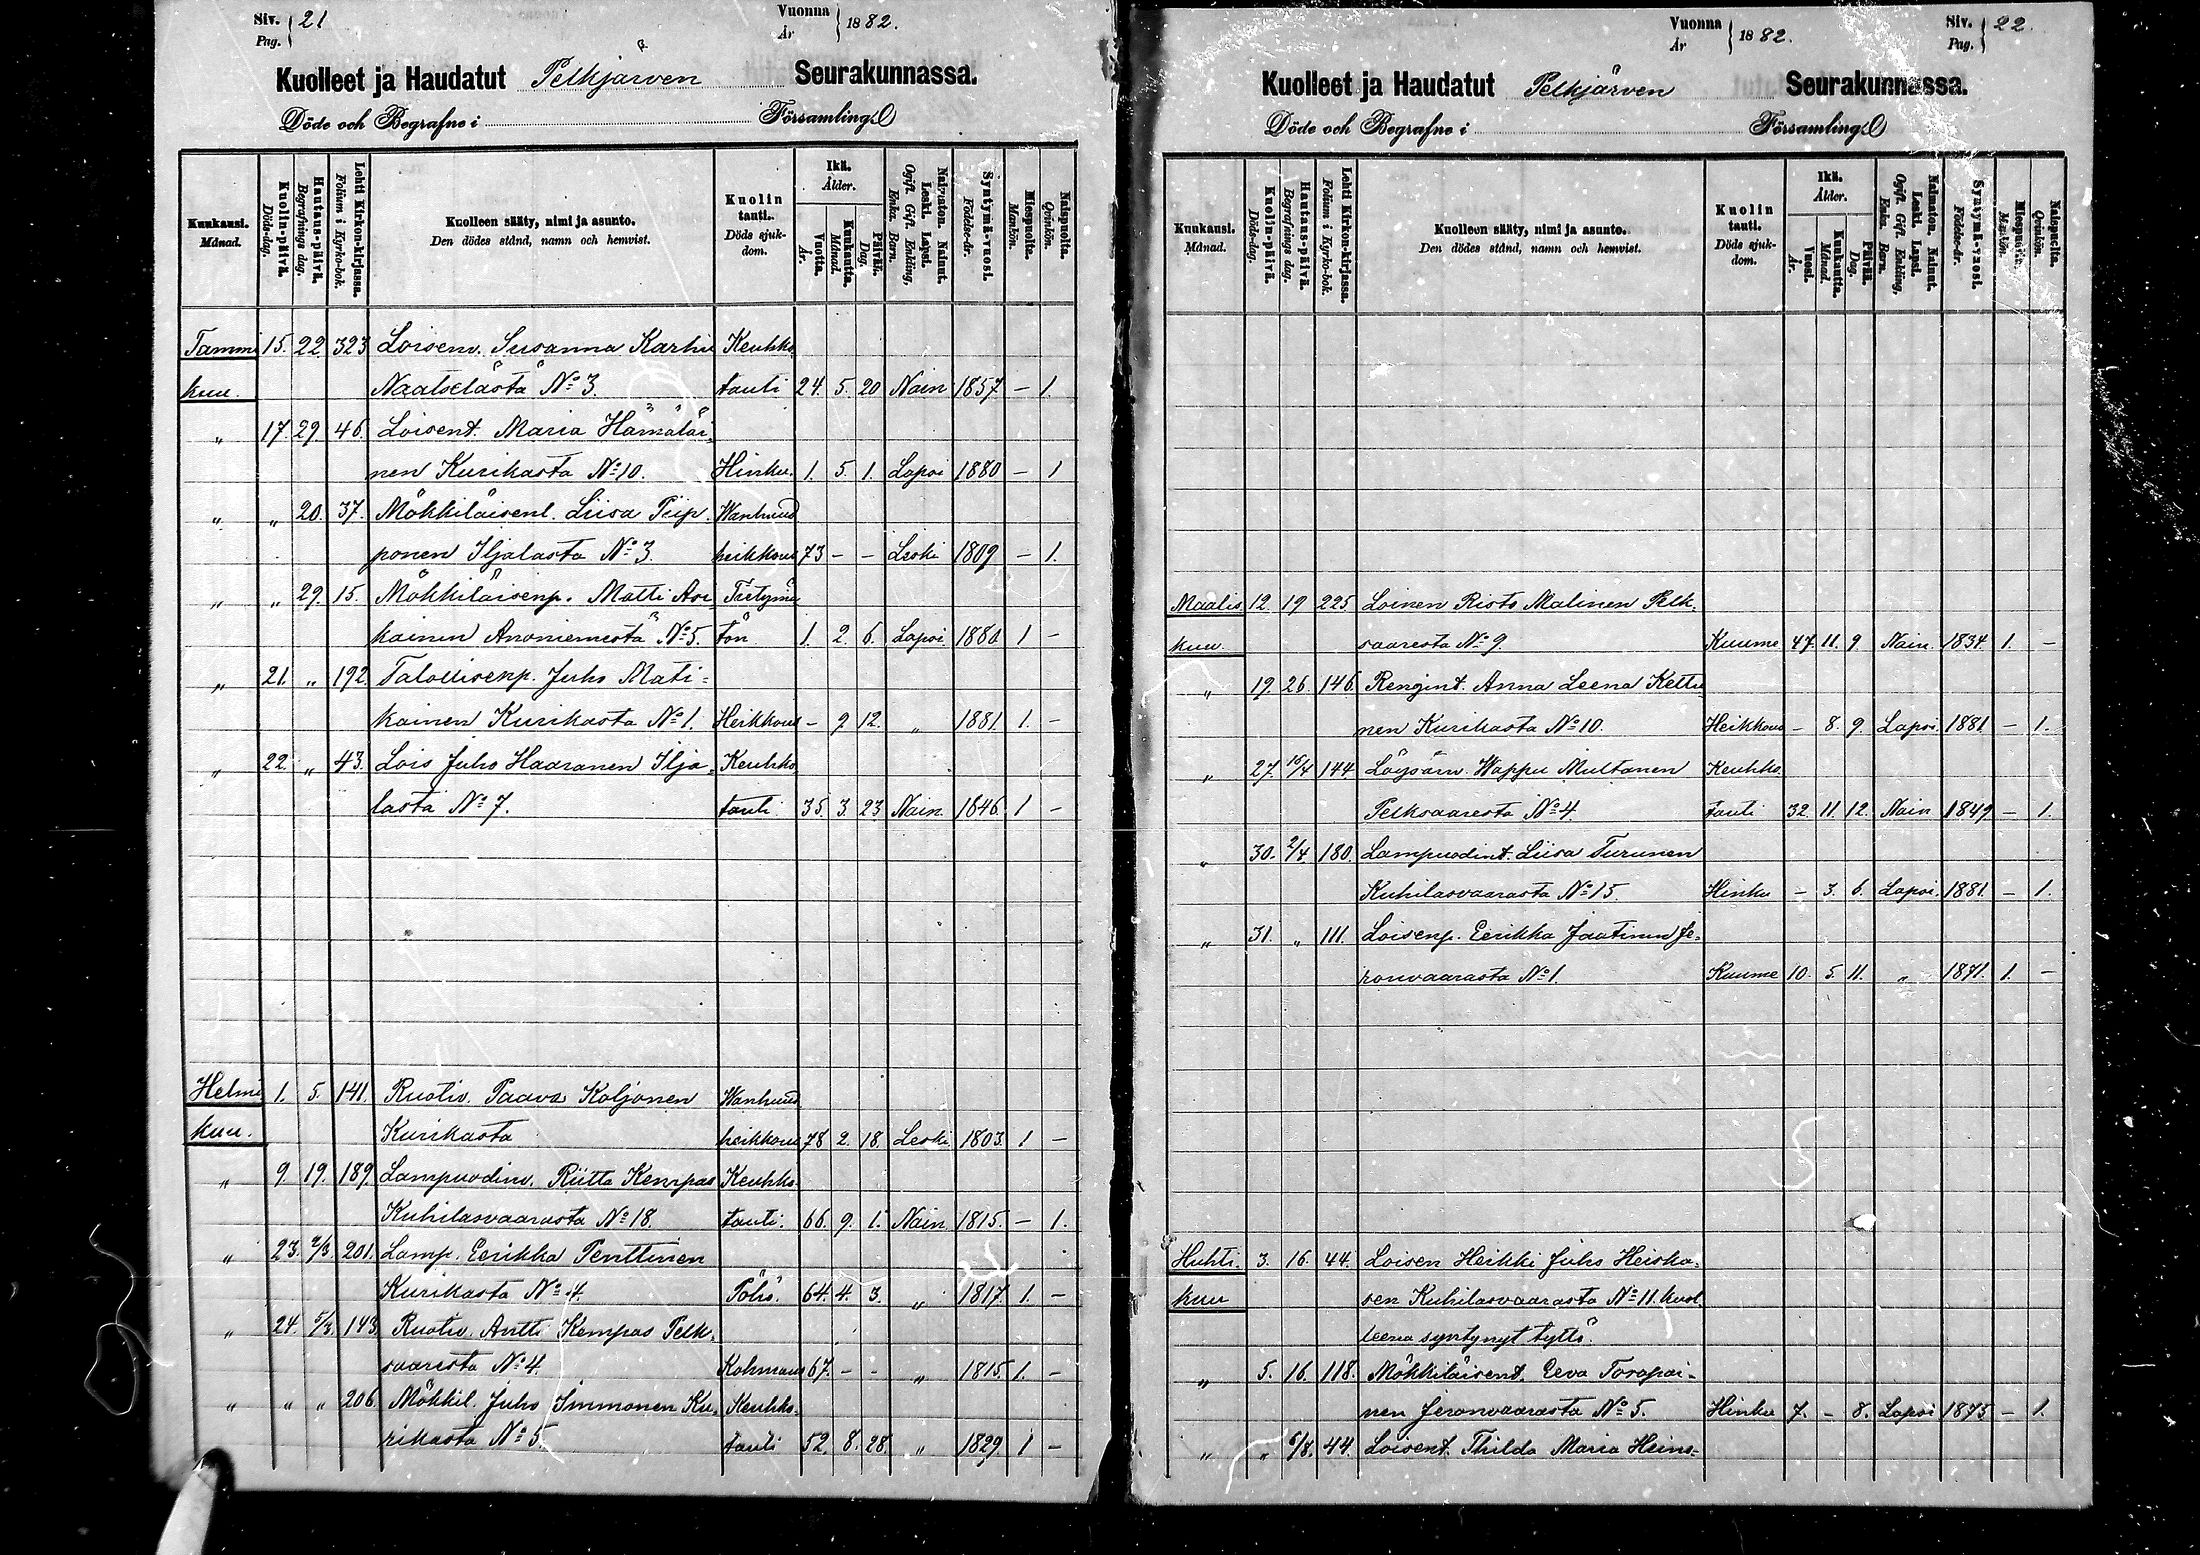 Siv. Pag. 21 Vuonna År 1882.
Kuolleet ja Haudatut Pelkjärven Seurakunnassa.
Döde och Begrafne i Församling.
Kuukausi. Månad. Kuolin-päivä. Döds-dag. Hautaus-päivä. Begrafnings dag. Lehti Kirkon-kirjassa. Folium i Kyrko-bok. Kuolleen sääty, nimi ja asunto. Den dödes stånd, namn och hemvist. Kuolin tauti. Döds sjuk-dom. Ikä. Ålder. Vuotta. År. Kuukautta. Månad. Päivää. Dag. Naimaton. Nainut. Leski. Lapsi. Ogift. Gift. Enkling, Enka. Barn. Syntymä-vuosi. Födelse-år. Miespuolta. Mankön. Naispuolta. Qvinkön.
Tammi 15. 22 323 Loisenv. Susanna Karhu Keuhko
kuu. Naatselästä No 3. tauti 24. 5. 20 Nain 1857 — 1.
„ 17 29. 46. Loisent. Maria Hämäläi-
nen Kurikasta No 10. Hinku. 1. 5. 1. Lapsi 1880 — 1
„ „ 20. 37. Mökkiläisenl. Liisa Piip- Wanhuud
ponen Iljalasta No 3. heikkous 73 — — Leski 1809 — 1.
„ „ 29. 15. Mökkiläisenp. Matti Asi- Tietymä
kainen Anoniemestä No 5. tön 1. 2. 6. Lapsi 1880 1 —
„ 21. „ 192. Talollisenp. Juho Mati-
kainen Kurikasta No 1. Heikkous — 9 12. „ 1881. 1. —
„ 22. „ 43. Lois Juho Haaranen Ilja- Keuhko
lasta No 7. tauti 35. 3. 23 Nain 1846 1 —
Helmi 1. 5. 141. Ruotiv. Paavo Koljonen Wanhuud
kuu. Kurikasta heikkous 78 2. 18. Leski 1803. 1 —
„ 9. 19. 189. Lampuodinv. Riitta Kempas Keuhko
Kuhilasvaarasta No 18. tauti. 66. 9. 1. Nain 1815. — 1.
„ 23. 2/3. 201. Lamp. Eerikka Penttinen
Kurikasta No 4. Pöhö. 64. 4. 3. „ 1817 1. —
„ 24. 5/3. 143. Ruotiv. Antti Kempas Pelk-
saaresta No 4. Kohmaus 67. — — „ 1815. 1. —
„ „ „ 206. Mökkil. Juho Immonen Ku- Keuhko-
rikasta No 5. tauti 52 8. 28. „ 1829. 1 —
Vuonna År 1882. Siv. Pag. 22.
Kuolleet ja Haudatut Pelkjärven Seurakunnassa.
Döde och Begrafne i Församling.
Kuukausi. Månad. Kuolin-päivä. Döds-dag. Hautaus-päivä. Begrafnings dag. Lehti Kirkon-kirjassa. Folium i Kyrko-bok. Kuolleen sääty, nimi ja asunto. Den dödes stånd, namn och hemvist. Kuolin tauti. Döds sjuk-dom. Ikä. Ålder. Vuosi. År. Kuukautta. Månad. Päivää. Dag. Naimaton. Nainut. Leski. Lapsi. Ogift. Gift. Enkling, Enka. Barn. Syntymä-vuosi. Födelse-år. Miespuolta. Mankön. Naispuolta. Qvinkön.
Maalis 12. 19 225 Loinen Risto Malinen Pelk-
kuu saaresta No 9. Kuume 47. 11. 9 Nain. 1834. 1. —
„ 19. 26. 146. Rengint. Anna Leena Kettu
nen Kurikasta No 10. Heikkous — 8. 9. Lapsi. 1881. — 1.
„ 27. 16/4 144 Löysäov. Wappu Multanen Keuhko.
Pelksaaresta No 4. tauti 32. 11. 12. Nain 1849 — 1.
„ 30. 2/4. 180. Lampuodint. Liisa Turunen
Kuhilasvaarasta No 15. Hinku — 3. 6. Lapsi. 1881. — 1.
„ 31. „ 111. Loisenp. Eerikka Jaatinen Je-
ronvaarasta No 1. Kuume 10. 5. 11. „ 1871. 1. —
Huhti. 3. 16. 44. Loisen Heikki Juho Heiska-
kuu sen Kuhilasvaarasta No 11. kuol
leena syntynyt tyttö.
„ 5. 16. 118. Mökkiläisent. Eeva Toropai-
nen Jeronvaarasta No 5. Hinku 7. — 8. Lapsi 1875 — 1.
„ „ 6/8. 44. Loisent. Thilda Maria Heins-